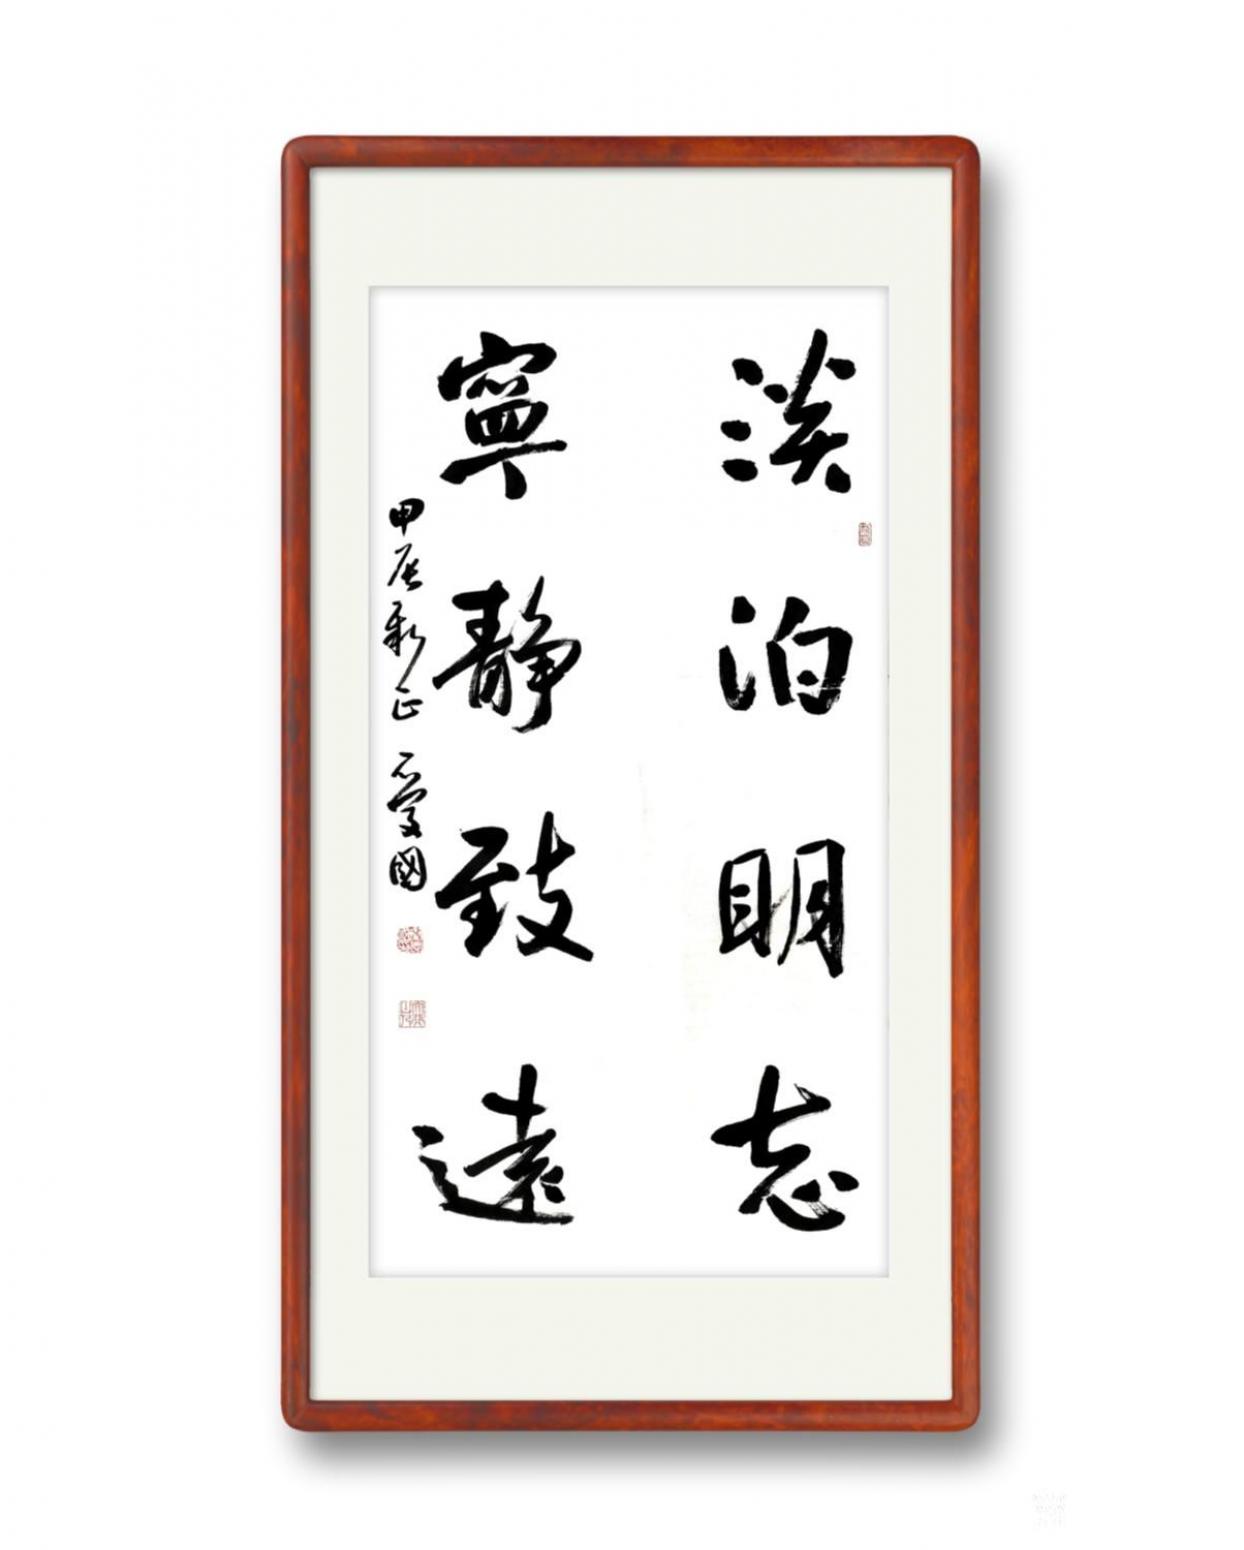 淡泊明志
寧靜致遠
甲辰新正 石愛國